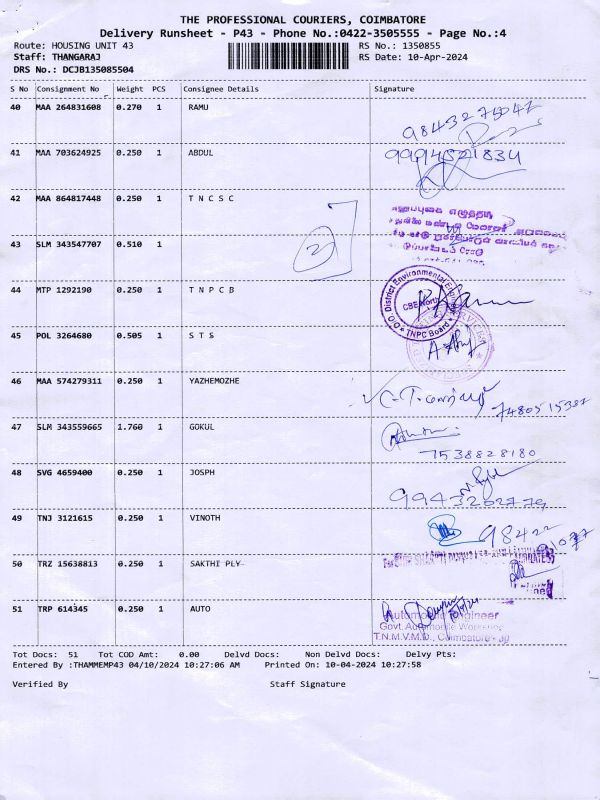 THE PROFESSIONAL COURIERS, COIMBATORE
Delivery Runsheet - P43 - Phone No.:0422-3505555 - Page No.:4
Route: HOUSING UNIT 43 RS No.: 1350855
Staff: THANGARAJ RS Date: 10-Apr-2024
DRS No.: DCJB135085504
S No Consignment No Weight PCS Consignee Details Signature
40 MAA 264831608 0.270 1 RAMU
9843275047
41 MAA 703624925 0.250 1 ABDUL 9994321834
42 MAA 864817448 0.250 1 T N C S C
43 SLM 343547707 0.510 1
2
44 MTP 1292190 0.250 1 T N P C B
District Environmental
CBE North
TNPC Board
45 POL 3264680 0.505 1 S T S
46 MAA 574279311 0.250 1 YAZHEMOZHE
7480515387
47 SLM 343559665 1.760 1 GOKUL
7538828180
48 SVG 4659400 0.250 1 JOSPH
9943202779
49 TNJ 3121615 0.250 1 VINOTH
98422
50 TRZ 15638813 0.250 1 SAKTHI PLY
51 TRP 614345 0.250 1 AUTO
Automobile Engineer
Govt. Automobile Workshop
T.N.M.V.M.D., Coimbatore
Tot Docs: 51 Tot COD Amt: 0.00 Delvd Docs: Non Delvd Docs: Delvy Pts:
Entered By :THAMMEMP43 04/10/2024 10:27:06 AM Printed On: 10-04-2024 10:27:58
Verified By Staff Signature